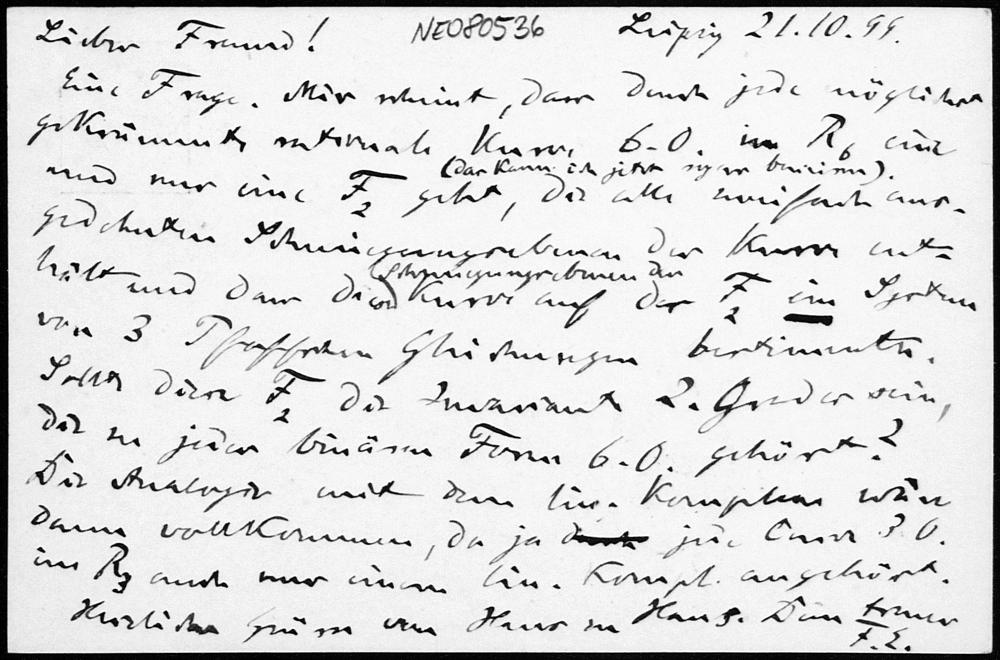 Lieber Freund! NE080536 Leipzig 21.10.99.
Eine Frage. Mir scheint, dass durch jede möglichst
gekrümmte rationale Kurve 6.O. im R6 eine
(das kann ich jetzt sogar beweisen).
und nur eine F2 geht, die alle zweifach aus-
gedehnten Schmiegungsebenen der Kurve ent-
hält und dass die Kurve auf der F2 ein System
(Schmiegungsebenen der
von 3 Pfaffschen Gleichungen bestimmte.
Sollte diese F2 die Invariante 2. Grades sein,
die zu jeder binären Form 6.O. gehört?
Die Analogie mit dem lin. Komplex wäre
dann vollkommen, da ja jede Curve 3.O.
im R3 auch nur einem lin. Kompl. angehört.
Herzliche Grüsse von Haus zu Haus. Dein treuer
F.E.